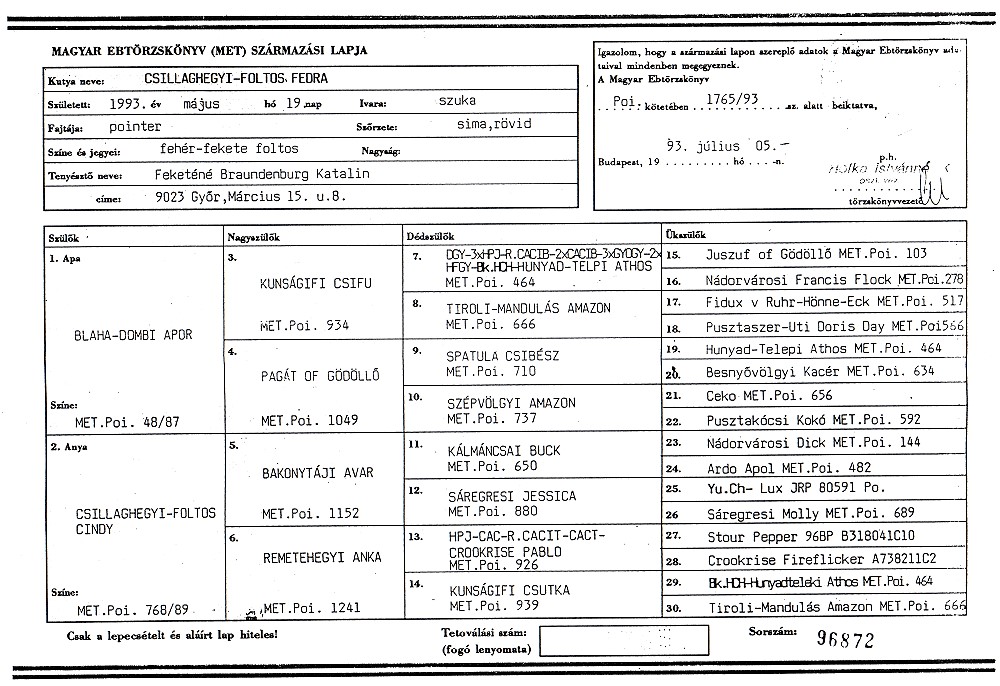 MAGYAR EBTÖRZSKÖNYV (MET) SZÁRMAZÁSI LAPJA
Kutya neve: CSILLAGHEGYI-FOLTOS FEDRA
Született: 1993. év május hó 19 nap Ivara: szuka
Fajtája: pointer Szőrzete: sima,rövid
Színe és jegyei: fehér-fekete foltos Nagyság:
Tenyésztő neve: Feketéné Braundenburg Katalin
címe: 9023 Győr,Március 15. u.8.
Igazolom, hogy a származási lapon szereplő adatok a Magyar Ebtörzskönyv ada-
taival mindenben megegyeznek.
A Magyar Ebtörzskönyv
Poi. kötetében 1765/93 sz. alatt beiktatva,
93. július 05.-
Budapest, 19 ......... hó ....-n.
p.h.
törzskönyvvezető
Szülők
1. Apa
BLAHA-DOMBI APOR
Színe:
MET.Poi. 48/87
2. Anya
CSILLAGHEGYI-FOLTOS
CINDY
Színe:
MET.Poi. 768/89
Nagyszülők
3.
KUNSÁGIFI CSIFU
MET.Poi. 934
4.
PAGÁT OF GÖDÖLLŐ
MET.Poi. 1049
5.
BAKONYTÁJI AVAR
MET.Poi. 1152
6.
REMETEHEGYI ANKA
MET.Poi. 1241
Dédszülők
7. DGY-3xHPJ-R.CACIB-2xCACIB-3xGYOGY-2x
HFGY-Bk.HCH-HUNYAD-TELPI ATHOS
MET.Poi. 464
8. TIROLI-MANDULÁS AMAZON
MET.Poi. 666
9. SPATULA CSIBÉSZ
MET.Poi. 710
10. SZÉPVÖLGYI AMAZON
MET.Poi. 737
11. KÁLMÁNCSAI BUCK
MET.Poi. 650
12. SÁREGRESI JESSICA
MET.Poi. 880
13. HPJ-CAC-R.CACIT-CACT-
CROOKRISE PABLO
MET.Poi. 926
14. KUNSÁGIFI CSUTKA
MET.Poi. 939
Ükszülők
15. Juszuf of Gödöllő MET.Poi. 103
16. Nádorvárosi Francis Flock MET.Poi.278
17. Fidux v Ruhr-Hönne-Eck MET.Poi. 517
18. Pusztaszer-Uti Doris Day MET.Poi566
19. Hunyad-Telepi Athos MET.Poi. 464
20. Besnyővölgyi Kacér MET.Poi. 634
21. Ceko MET.Poi. 656
22. Pusztakócsi Kokó MET.Poi. 592
23. Nádorvárosi Dick MET.Poi. 144
24. Ardo Apol MET.Poi. 482
25. Yu.Ch- Lux JRP 80591 Po.
26 Sáregresi Molly MET.Poi. 689
27. Stour Pepper 96BP B318041C10
28. Crookrise Fireflicker A738211C2
29. Bk.HCH-Hunyadteleki Athos MET.Poi. 464
30. Tiroli-Mandulás Amazon MET.Poi. 666
Csak a lepecsételt és aláírt lap hiteles!
Tetoválási szám:
(fogó lenyomata)
Sorszám: 96872